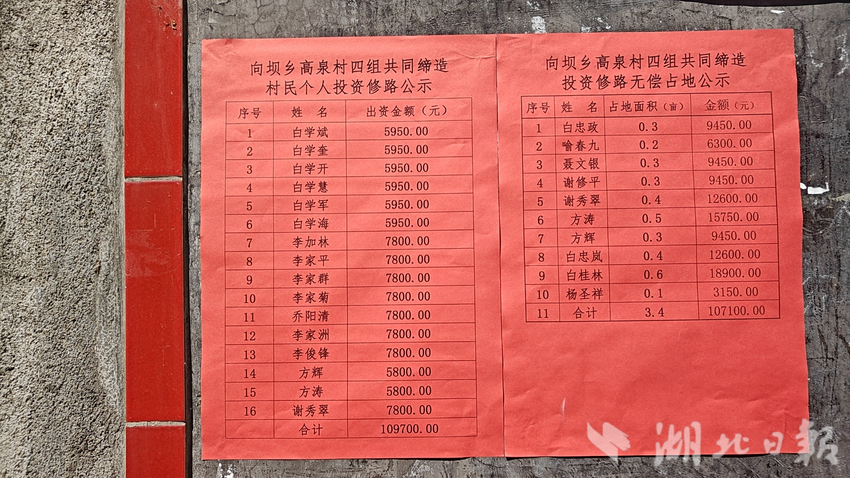 向坝乡高泉村四组共同缔造
村民个人投资修路公示
序号 姓 名 出资金额（元）
1 白学斌 5950.00
2 白学奎 5950.00
3 白学开 5950.00
4 白学慧 5950.00
5 白学军 5950.00
6 白学海 5950.00
7 李加林 7800.00
8 李家平 7800.00
9 李家群 7800.00
10 李家菊 7800.00
11 乔阳清 7800.00
12 李家洲 7800.00
13 李俊锋 7800.00
14 方辉 5800.00
15 方涛 5800.00
16 谢秀翠 7800.00
合计 109700.00
向坝乡高泉村四组共同缔造
投资修路无偿占地公示
序号 姓 名 占地面积（亩） 金额（元）
1 白忠政 0.3 9450.00
2 喻春九 0.2 6300.00
3 聂文银 0.3 9450.00
4 谢修平 0.3 9450.00
5 谢秀翠 0.4 12600.00
6 方涛 0.5 15750.00
7 方辉 0.3 9450.00
8 白忠岚 0.4 12600.00
9 白桂林 0.6 18900.00
10 杨圣祥 0.1 3150.00
11 合计 3.4 107100.00
湖北日报